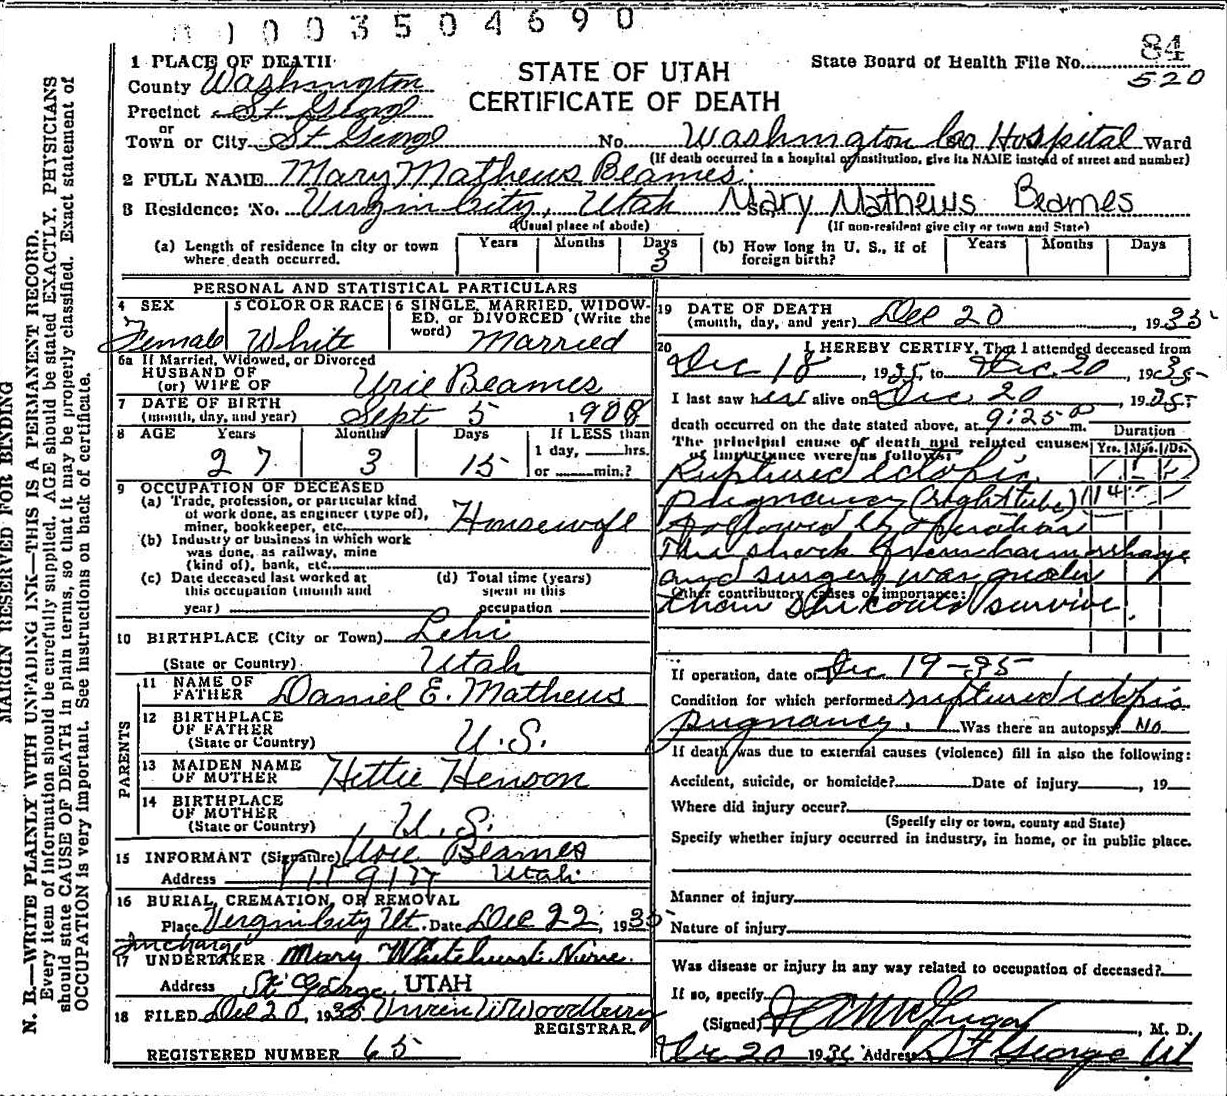 1003504690
84
520
1 PLACE OF DEATH
STATE OF UTAH
CERTIFICATE OF DEATH
State Board of Health File No.
County Washington
Precinct St George
or
Town or City St George No. Washington Co Hospital Ward
(If death occurred in a hospital or institution, give its NAME instead of street and number)
2 FULL NAME Mary Mathews Beames.
3 Residence: No. Virgin City, Utah Mary Mathews Beames
(Usual place of abode) (If non-resident give city or town and State)
(a) Length of residence in city or town where death occurred. Years Months Days 3
(b) How long in U. S., if of foreign birth? Years Months Days
PERSONAL AND STATISTICAL PARTICULARS
4 SEX Female
5 COLOR OR RACE White
6 SINGLE, MARRIED, WIDOWED, or DIVORCED (Write the word) Married
6a If Married, Widowed, or Divorced
HUSBAND OF
(or) WIFE OF Urie Beames
7 DATE OF BIRTH
(month, day, and year) Sept 5 1908
8 AGE Years Months Days If LESS than
27 3 15 1 day, hrs.
or min.?
9 OCCUPATION OF DECEASED
(a) Trade, profession, or particular kind of work done, as engineer (type of), miner, bookkeeper, etc. Housewife
(b) Industry or business in which work was done, as railway, mine (kind of), bank, etc.
(c) Date deceased last worked at this occupation (month and year)
(d) Total time (years) spent in this occupation
10 BIRTHPLACE (City or Town) Lehi
(State or Country) Utah
PARENTS
11 NAME OF FATHER Daniel E. Mathews
12 BIRTHPLACE OF FATHER
(State or Country) U.S.
13 MAIDEN NAME OF MOTHER Hettie Henson
14 BIRTHPLACE OF MOTHER
(State or Country) U.S.
15 INFORMANT (Signature) Urie Beames
Address Utah
16 BURIAL, CREMATION, OR REMOVAL
Place Virgin City Ut. Date Dec 22, 1935
In charge
17 UNDERTAKER Mary Whitehurst Nurse.
Address St George UTAH
18 FILED Dec 20, 1935 Woodbury
REGISTRAR.
REGISTERED NUMBER 65
19 DATE OF DEATH
(month, day, and year) Dec 20, 1935
20 I HEREBY CERTIFY, That I attended deceased from
Dec 18, 1935, to Dec. 20, 1935
I last saw her alive on Dec. 20, 1935
death occurred on the date stated above, at 9:25 m.
The principal cause of death and related causes of importance were as follows:
Duration
Yrs. Mos. Ds.
Ruptured Ectopic
pregnancy (right tube) 14
followed by operation
The shock from haemorrhage
and surgery was greater
Other contributory causes of importance:
than she could survive.
If operation, date of Dec 19-35
Condition for which performed ruptured ectopic
pregnancy. Was there an autopsy? No
If death was due to external causes (violence) fill in also the following:
Accident, suicide, or homicide? Date of injury , 19
Where did injury occur?
(Specify city or town, county and State)
Specify whether injury occurred in industry, in home, or in public place.
Manner of injury
Nature of injury
Was disease or injury in any way related to occupation of deceased?
If so, specify
(Signed) McGregor, M. D.
Dec 20 1935 Address St George Ut
MARGIN RESERVED FOR BINDING
N. B.—WRITE PLAINLY WITH UNFADING INK—THIS IS A PERMANENT RECORD.
Every item of information should be carefully supplied. AGE should be stated EXACTLY. PHYSICIANS
should state CAUSE OF DEATH in plain terms, so that it may be properly classified. Exact statement of
OCCUPATION is very important. See instructions on back of certificate.